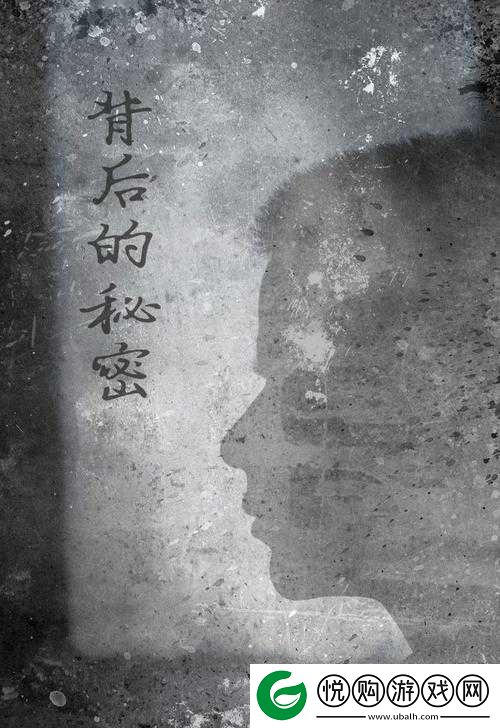 背后的秘密
悦购游戏网
www.ubalh.com